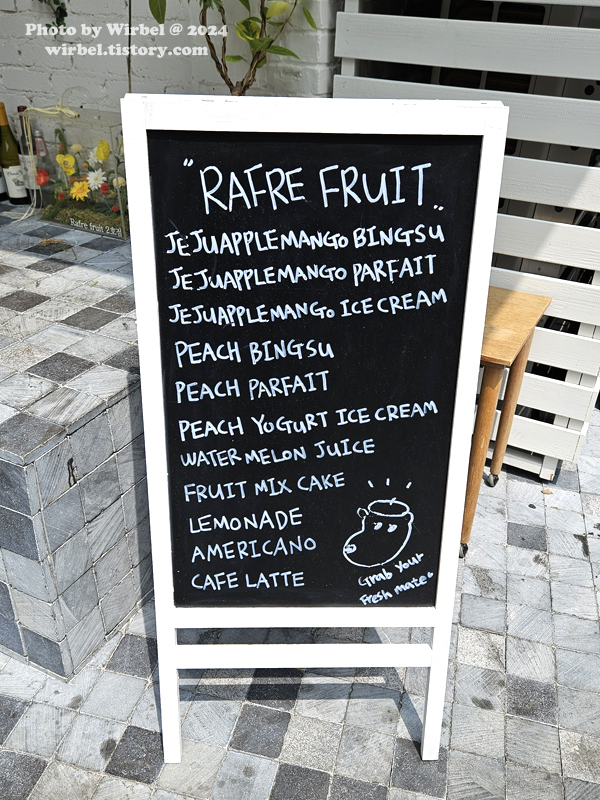 Photo by Wirbel @ 2024
wirbel.tistory.com
Rafre fruit 2호점
"RAFRE FRUIT"
JEJUAPPLEMANGO BINGSU
JEJUAPPLEMANGO PARFAIT
JEJUAPPLEMANGO ICE CREAM
PEACH BINGSU
PEACH PARFAIT
PEACH YOGURT ICE CREAM
WATERMELON JUICE
FRUIT MIX CAKE
LEMONADE
AMERICANO
CAFE LATTE
Grab Your
Fresh mate